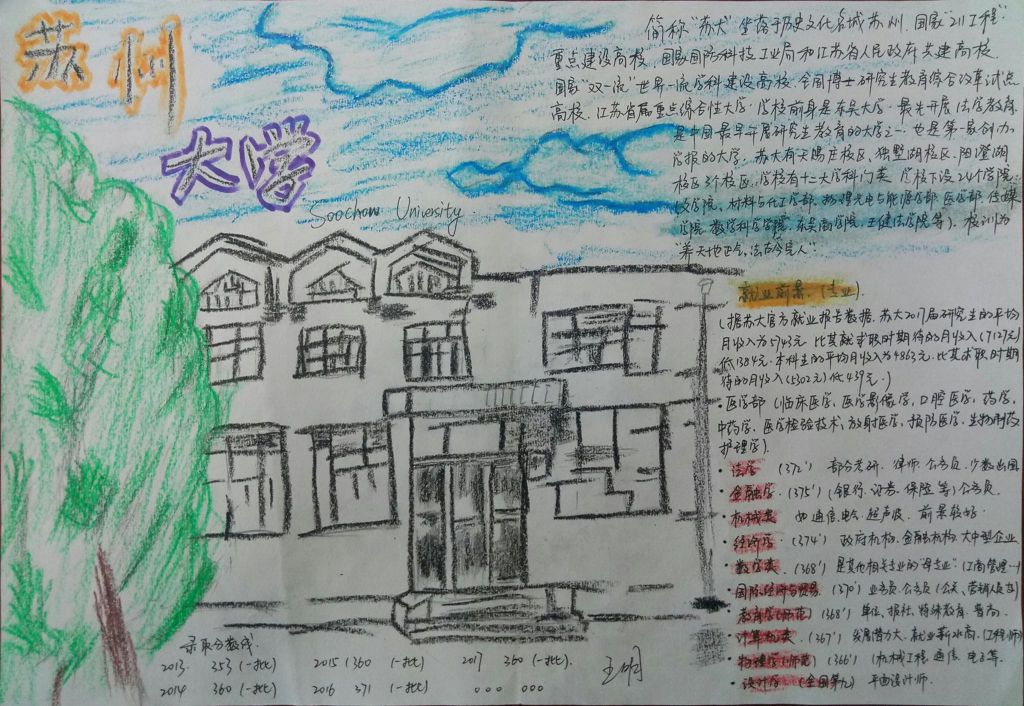 苏州
大学
Soochow University
简称"苏大"坐落于历史文化名城苏州.国家"211工程"
重点建设高校,国家国防科技工业局和江苏省人民政府共建高校
国家"双一流"世界一流学科建设高校.全国博士研究生教育综合改革试点
高校、江苏省属重点综合性大学.学校前身是东吴大学.最先开展法学教育
是中国最早开展研究生教育的大学之一.也是第一家创办
学报的大学.苏大有天赐庄校区、独墅湖校区、阳澄湖
校区3个校区.学校有十二大学科门类 学校下设24个学院:
(文学院、材料与化工学部、 能源学部 医学部.传媒
学院.数学科学学院.东吴商学院.王健法学院等).校训为
"养天地正气,法古今完人".
就业前景.(专业).
(据苏大官方就业报告数据.苏大2017届研究生的平均
月收入为5743元 比其就求职时期待的月收入(7127元)
低1384元.本科生的平均月收入为4863元.比其求职时期
待的月收入(5302元)低439元.)
·医学部(临床医学、医学影像学,口腔医学,药学,
中药学,医学检验技术、放射医学,预防医学,生物制药
护理学).
·法学 (372') 部分考研.律师.公务员.少数出国
·金融学.(375')(银行.证券.保险等)公务员.
·机械类 如通信.电气.超声波.前景较好.
·经济学.(374') 政府机构.金融机构.大中型企业
·数学类.(368') 是其他相关专业的"母专业":(工商管理一)
·国际经济与贸易 (370') 业务员.公务员(公关、营销人员)
教育学(师范)(368') 单位、报社.特殊教育.
·计算机类.(367') 发展潜力大.就业薪水高.(工程师)
物理学(师范)(366') (机械工程.通信.电子等.
·设计学 (全国第九) 平面设计师.
录取分数线:
2013. 353 (一批) 2015 (360 (一批) 2017 360 (一批).
2014 360 (一批) 2016 371 (一批) 。。。 。。。
王明